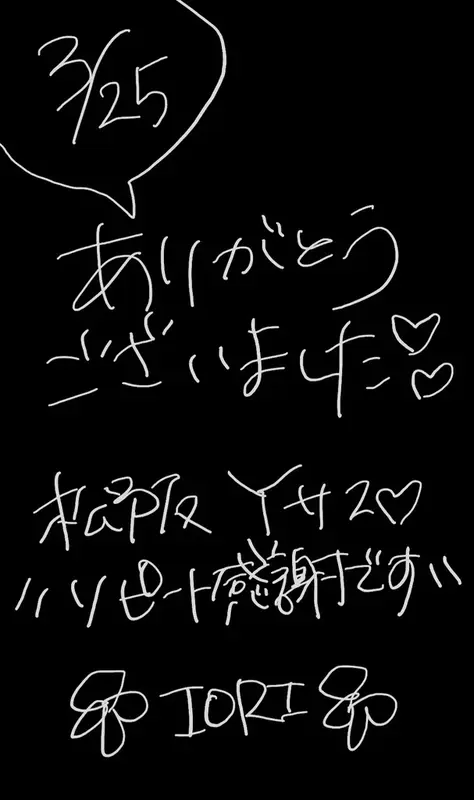 3/25
ありがとう
ございました♡♡
松阪 Yサ2♡
〃リピート感謝です〃
IORI